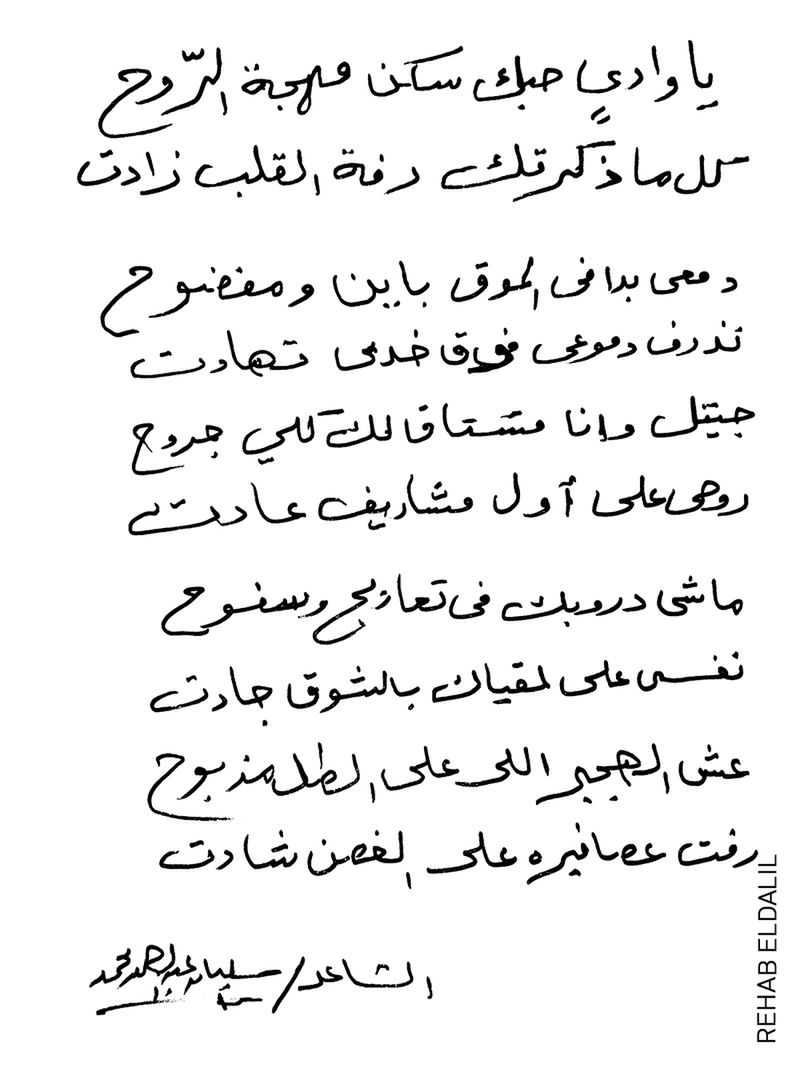 يا وادي حبك سكن مهجة الرّوح
كل ما ذكرتك رفة القلب زادت
دمعى بدا فى الموق باين ومفضوح
تذرف دموعى فوق خدى تهادت
جيتك وانا مشتاق لك كلي جروح
روحى على أول مشاريف عادت
ماشى دروبك فى تعاريج وسفوح
نفسى على لمقياك بالشوق جادت
عش الهجير اللى على الطل مذبوح
رفت عصافيره على الغصن شادت
الشاعر/ سليمان عبدالرحمن محمد
REHAB ELDALIL